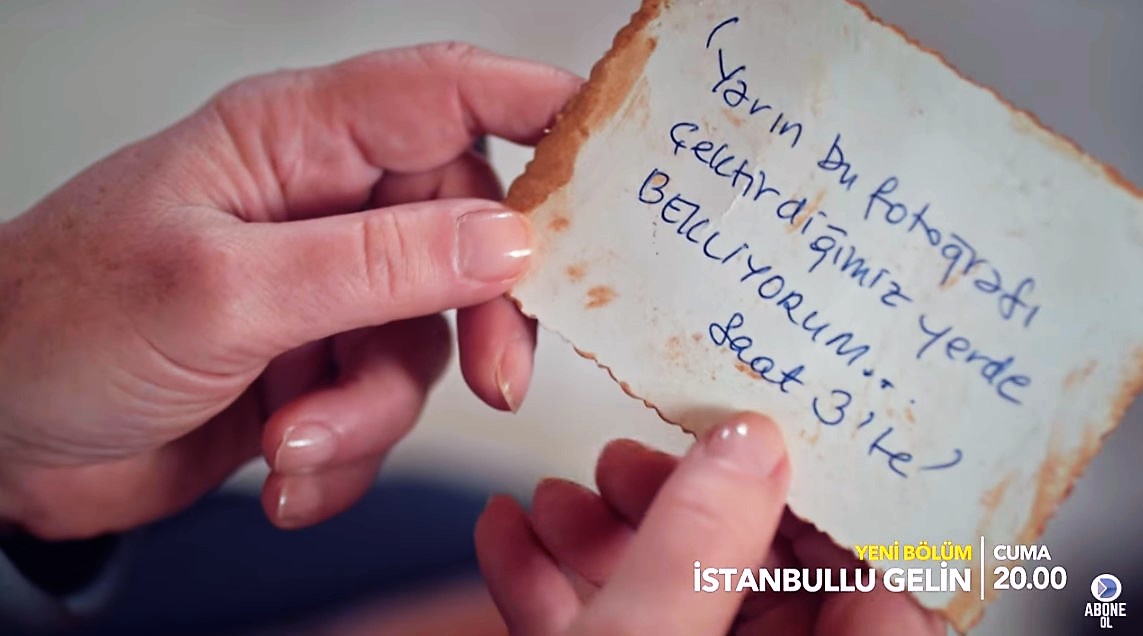 (Yarın bu fotoğrafı
çektirdiğimiz yerde
BEKLİYORUM...
Saat 3'te)
YENİ BÖLÜM
İSTANBULLU GELİN
CUMA
20.00
ABONE
OL